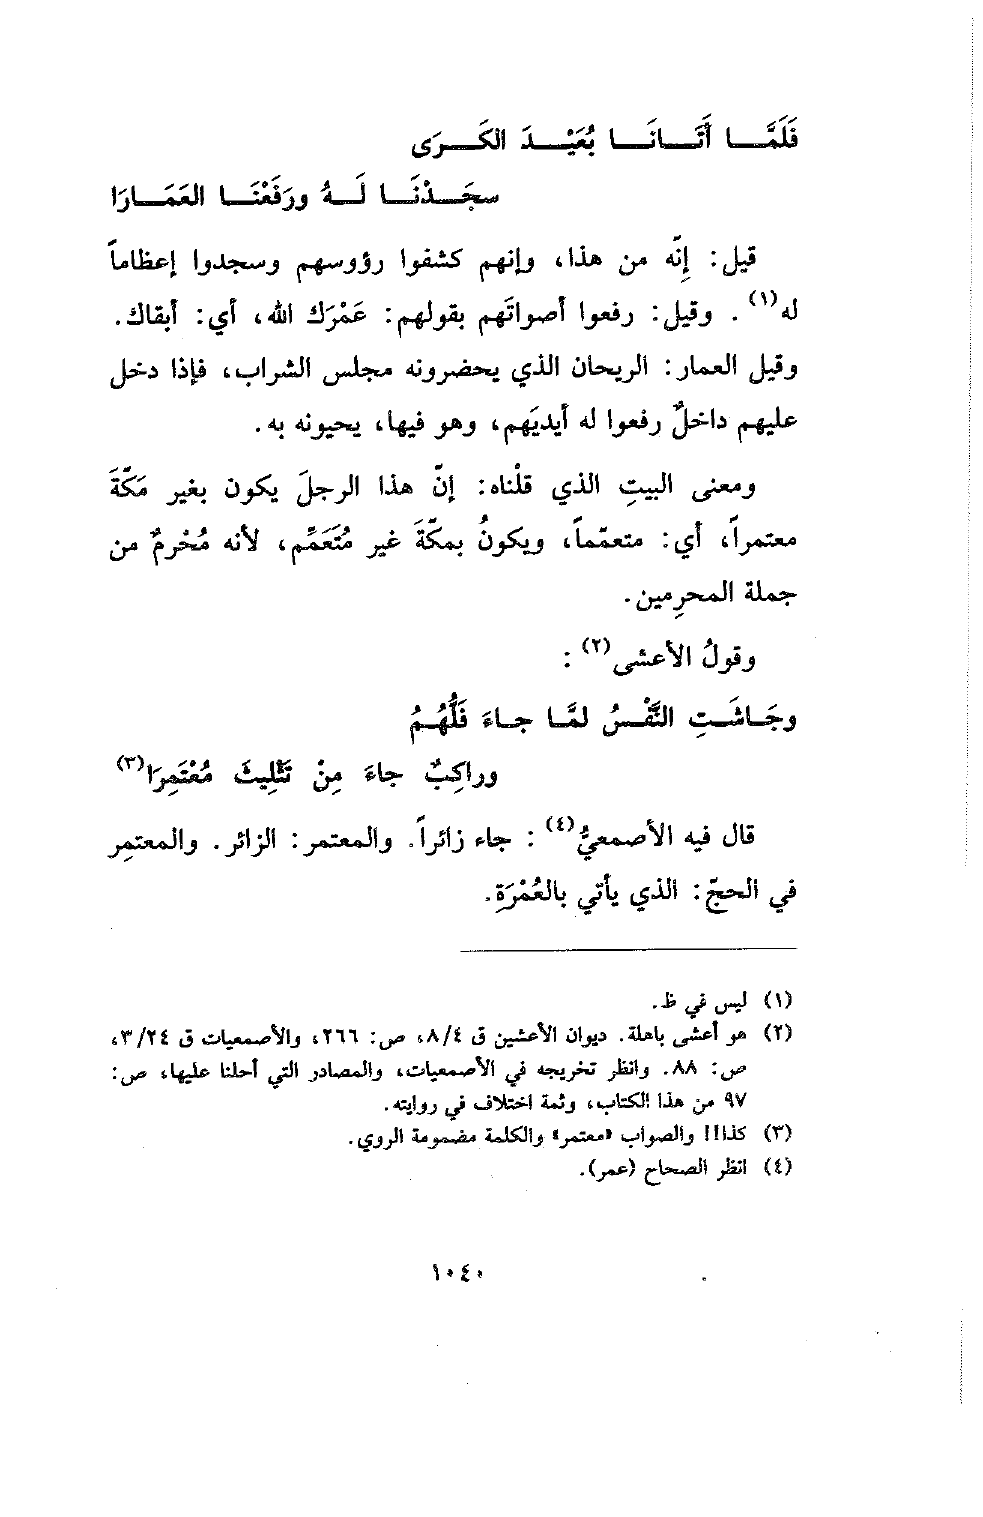 فَلَمَّا أَتَانَا بُعَيْدَ الكَرَى
سجَدْنَا لَهُ ورَفَعْنَا العَمَارَا
قيل: إِنّه من هذا، وإنهم كشفوا رؤوسهم وسجدوا إعظاماً
له(١). وقيل: رفعوا أصواتَهم بقولهم: عَمْرَك الله، أي: أبقاك.
وقيل العمار: الريحان الذي يحضرونه مجلس الشراب، فإذا دخل
عليهم داخلٌ رفعوا له أيديَهم، وهو فيها، يحيونه به.
ومعنى البيتِ الذي قلْناه: إنّ هذا الرجلَ يكون بغير مَكّةَ
معتمراً، أي: متعمّماً، ويكونُ بمكّةَ غير مُتَعَمِّم، لأنه مُحْرمٌ من
جملة المحرِمين.
وقولُ الأعشى(٢):
وجَاشَتِ النَّفْسُ لمَّا جاءَ فَلُّهُمُ
وراكِبٌ جاءَ مِنْ تَثْلِيثَ مُعْتَمِرَا(٣)
قال فيه الأصمعيُّ(٤): جاء زائراً. والمعتمر: الزائر. والمعتمِر
في الحجّ: الذي يأتي بالعُمْرَةِ.
(١) ليس في ظ.
(٢) هو أعشى باهلة. ديوان الأعشين ق ٨/٤، ص: ٢٦٦، والأصمعيات ق ٣/٢٤،
ص: ٨٨. وانظر تخريجه في الأصمعيات، والمصادر التي أحلنا عليها، ص:
٩٧ من هذا الكتاب، وثمة اختلاف في روايته.
(٣) كذا!! والصواب «معتمر» والكلمة مضمومة الروي.
(٤) انظر الصحاح (عمر).
١٠٤٠